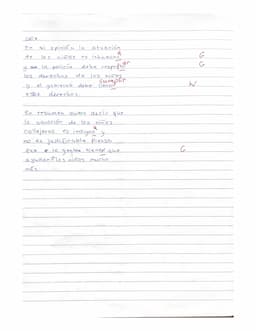 En mi opinión la situación
de los niños es inhumana G
y que la policía debe respetar G
los derechos de los niños
y el gobierno debe cumplir W
estos derechos.
En resumen quiero decir que
la situación de los niños
callejeros es indigna y
no es justificable. Pienso
que la gente tiene que G
ayudar los niños mucho
más.